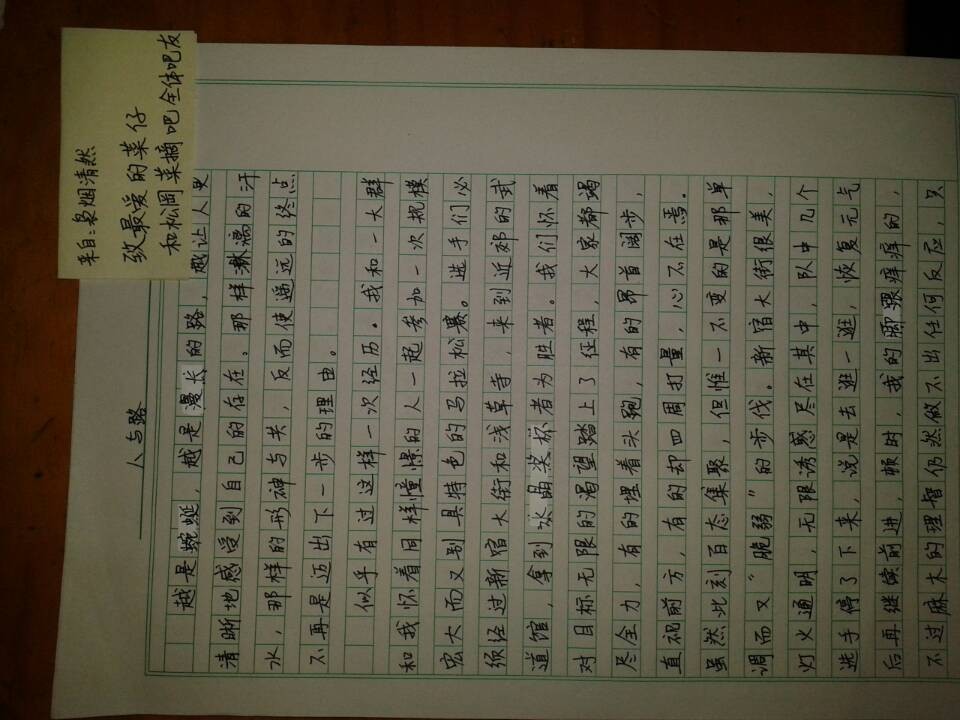 来自:袅烟清然
致最爱的菜仔
和松冈菜摘吧全体吧友
人与路
越是蜿蜒,越是漫长的路,越让人更
清晰地感受到自己的存在。那样淋漓的汗
水,那样的形神与共,反而使遥远的终点
不再是迈出下一步的理由。
似乎有过这样一次经历。我和一大群
和我怀着同样憧憬的人一起参加一次规模
宏大而又别具特色的马拉松赛。选手们必
须经过新宿大街和浅草寺,来到近郊的武
道馆,拿到水晶奖杯者为胜者。我们怀着
对目标无限的渴望踏上了征程,大家都竭
尽全力,有的埋着头跑,有的昂首阔步,
直视前方,有的却四周打量,心不在焉。
虽然此刻百态集聚,但惟一不变的是那单
调而又"脆弱"的步伐。新宿大街很美,
灯火通明,无限诱惑尽在其中,队中几个
选手停了下来,说是去逛一逛,恢复元气
后再继续前进,顿时,我的脚踝痒痒的,
不过麻木的理智仍然做不出任何反应,只